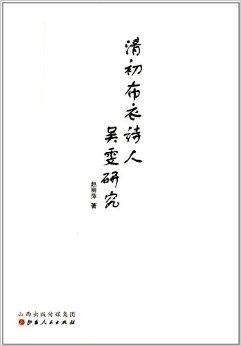 清初布衣詩人
吴雯研究
赵丽萍 著
山西出版传媒集团
山西人民出版社